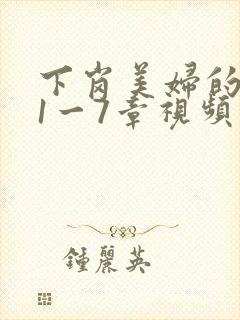 下岗美婦的
1一7章視頻
鍾麗英